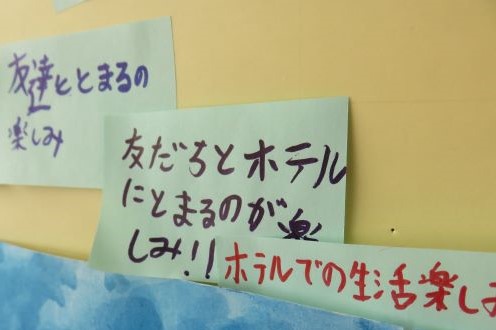 友達ととまるの
楽しみ
友だちとホテル
にとまるのが楽
しみ!!
ホテルでの生活楽しみ